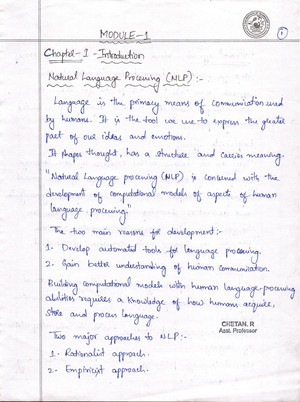 MODULE-1
1
Chapter-1 - Introduction
Natural Language Processing (NLP) :-
Language is the primary means of communication used
by humans. It is the tool we use to express the greater
part of our ideas and emotions.
It shapes thought, has a structure and carries meaning.
"Natural Language processing (NLP) is concerned with the
development of computational models of aspects of human
language processing."
The two main reasons for development :-
1. Develop automated tools for language processing.
2. Gain better understanding of human communication.
Building computational models with human language-processing
abilities requires a knowledge of how humans acquire,
store and process language.
CHETAN. R
Asst. Professor
Two major approaches to NLP :-
1. Rationalist approach.
2. Empiricist approach.